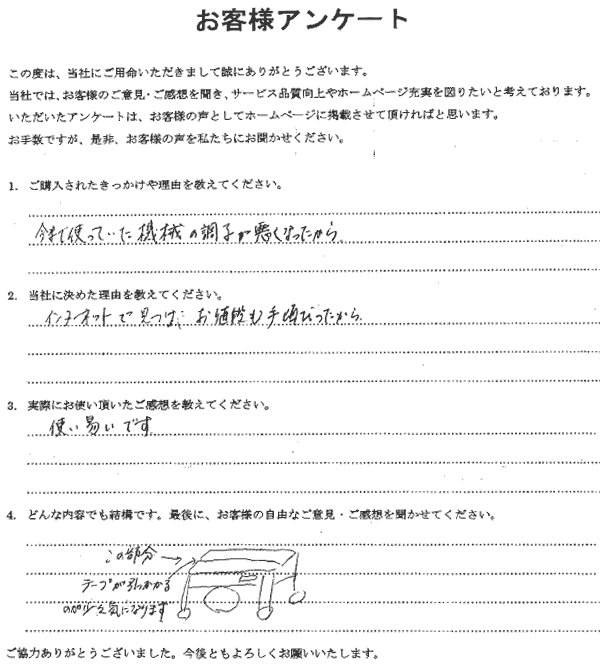 お客様アンケート
この度は、当社にご用命いただきまして誠にありがとうございます。
当社では、お客様のご意見・ご感想を聞き、サービス品質向上やホームページ充実を図りたいと考えております。
いただいたアンケートは、お客様の声としてホームページに掲載させて頂ければと思います。
お手数ですが、是非、お客様の声を私たちにお聞かせください。
1. ご購入されたきっかけや理由を教えてください。
今まで使っていた機械の調子が悪くなったから.
2. 当社に決めた理由を教えてください。
インターネットで見つけ、お値段も手頃だったから.
3. 実際にお使い頂いたご感想を教えてください。
使い易いです
4. どんな内容でも結構です。最後に、お客様の自由なご意見・ご感想を聞かせてください。
この部分
テープが引っかかる
のが少々気になります
ご協力ありがとうございました。今後ともよろしくお願いいたします。